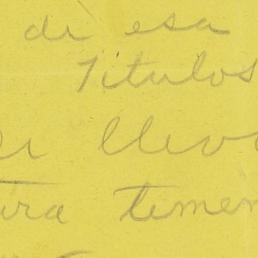 di esa
Titulos
llevo
temen